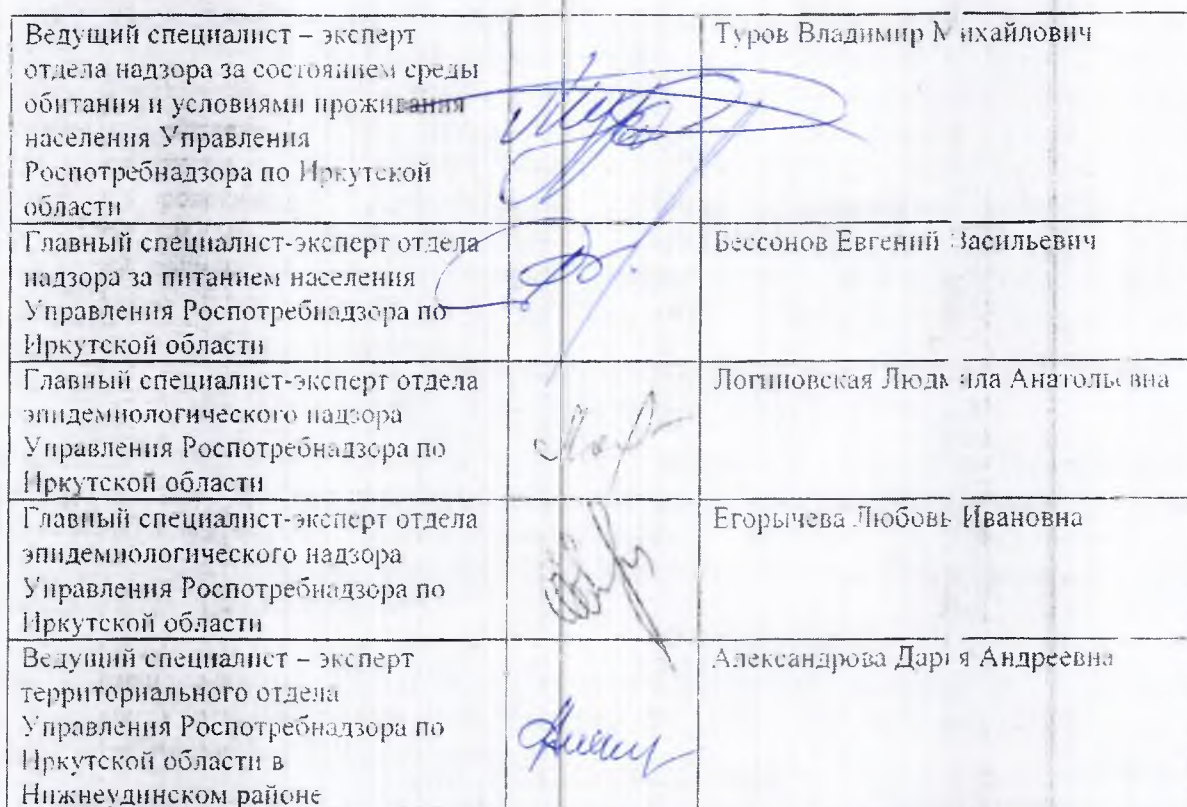 Ведущий специалист – эксперт
отдела надзора за состоянием среды
обитания и условиями проживания
населения Управления
Роспотребнадзора по Иркутской
области
Туров Владимир Михайлович
Главный специалист-эксперт отдела
надзора за питанием населения
Управления Роспотребнадзора по
Иркутской области
Бессонов Евгений Васильевич
Главный специалист-эксперт отдела
эпидемиологического надзора
Управления Роспотребнадзора по
Иркутской области
Логиновская Людмила Анатольевна
Главный специалист-эксперт отдела
эпидемиологического надзора
Управления Роспотребнадзора по
Иркутской области
Егорычева Любовь Ивановна
Ведущий специалист – эксперт
территориального отдела
Управления Роспотребнадзора по
Иркутской области в
Нижнеудинском районе
Александрова Дарья Андреевна